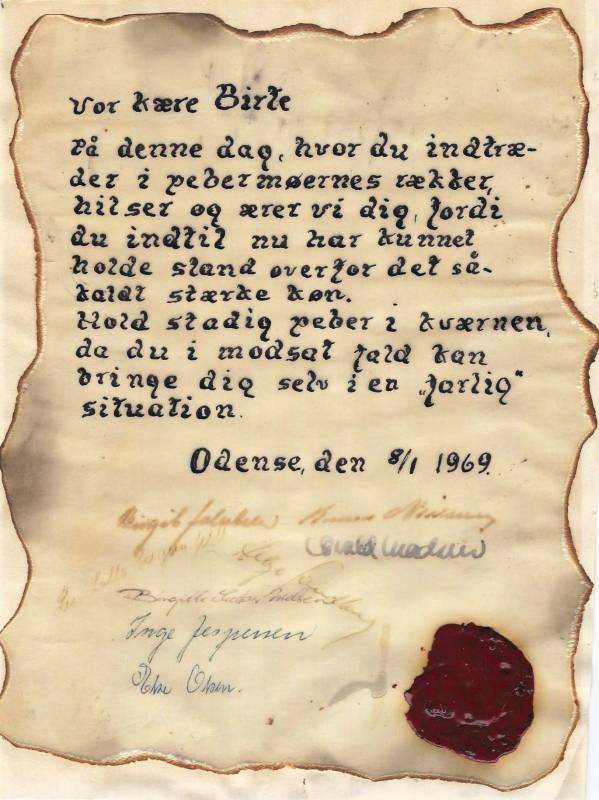 Vor kære Birte
På denne dag, hvor du indtræ-
der i pebermøernes rækker,
hilser og ærer vi dig, fordi
du indtil nu har kunnet
holde stand overfor det så-
kaldt stærke køn.
Hold stadig peber i kværnen,
da du i modsat fald kan
bringe dig selv i en „farlig"
situation.
Odense, den 8/1 1969.
Birgit
Inge Jespersen
Else Olsen.